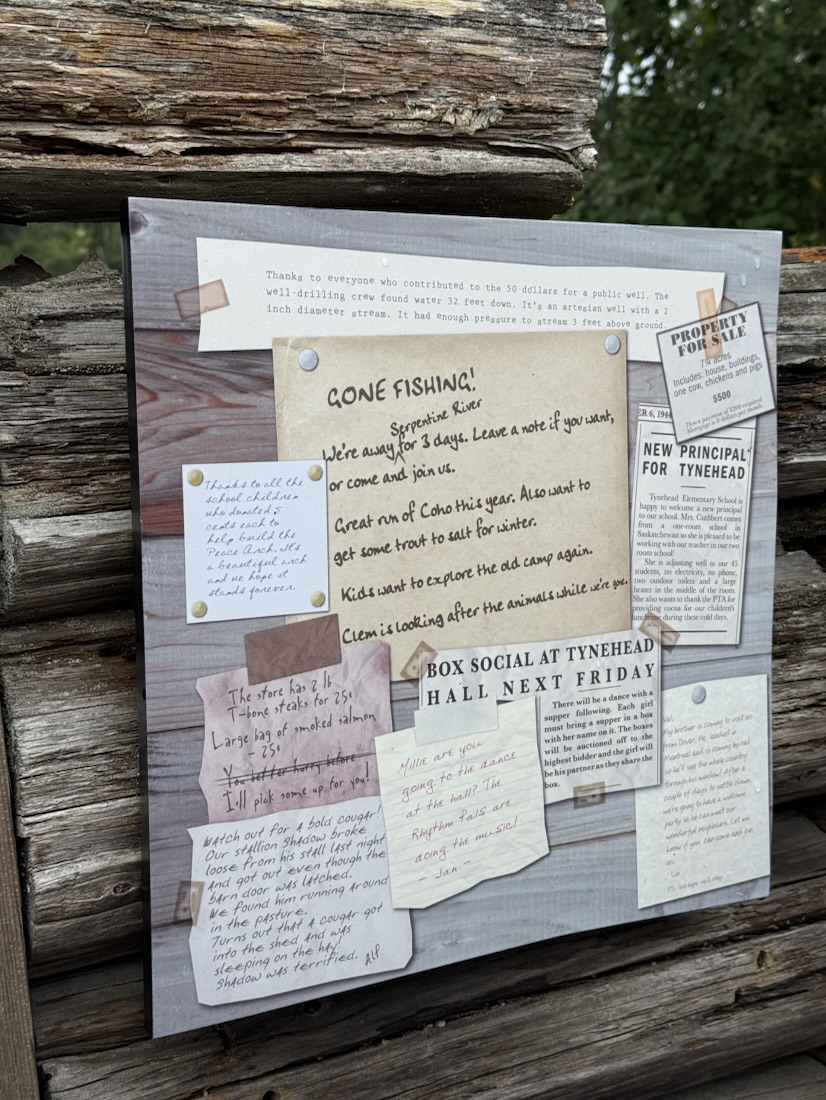 Thanks to everyone who contributed to the 50 dollars for a public well. The
well-drilling crew found water 32 feet down. It's an artesian well with a 2
inch diameter stream. It had enough pressure to stream 3 feet above ground.
PROPERTY
FOR SALE
7¼ acres
Includes: house, buildings,
one cow, chickens and pigs
$500
Down payment of $200 required.
Mortgage is 5 dollars per month.
GONE FISHING!
Serpentine River
We're away for 3 days. Leave a note if you want,
or come and join us.
Great run of Coho this year. Also want to
get some trout to salt for winter.
Kids want to explore the old camp again.
Clem is looking after the animals while we're gone.
Thanks to all the
school children
who donated 5
cents each to
help build the
Peace Arch. It's
a beautiful arch
and we hope it
stands forever.
ER 6, 194
NEW PRINCIPAL
FOR TYNEHEAD
Tynehead Elementary School is
happy to welcome a new principal
to our school. Mrs. Cuthbert comes
from a one-room school in
Saskatchewan so she is pleased to be
working with our teacher in our two
room school!
She is adjusting well to our 45
students, no electricity, no phone,
two outdoor toilets and a large
heater in the middle of the room.
She also wants to thank the PTA for
providing cocoa for our children's
lunchtime during these cold days.
The store has 2 lb
T-bone steaks for 25¢
Large bag of smoked salmon
- 25¢
You better hurry before
I'll pick some up for you!
BOX SOCIAL AT TYNEHEAD
HALL NEXT FRIDAY
There will be a dance with a
supper following. Each girl
must bring a supper in a box
with her name on it. The boxes
will be auctioned off to the
highest bidder and the girl will
be his partner as they share the
box.
Millie are you
going to the dance
at the hall? The
Rhythm Pals are
doing the music!
- Jan -
My brother is coming to visit us
from Dover. He landed in
Montreal and is coming by rail
so he'll see the whole country
through his window! After a
couple of days to settle down,
we're going to have a welcome
party so he can meet our
wonderful neighbours. Let me
know if you can come and join
us.
Watch out for a bold cougar!
Our stallion Shadow broke
loose from his stall last night
and got out even though the
barn door was latched.
We found him running around
in the pasture.
Turns out that a cougar got
into the shed and was
sleeping on the hay!
Shadow was terrified. Alf